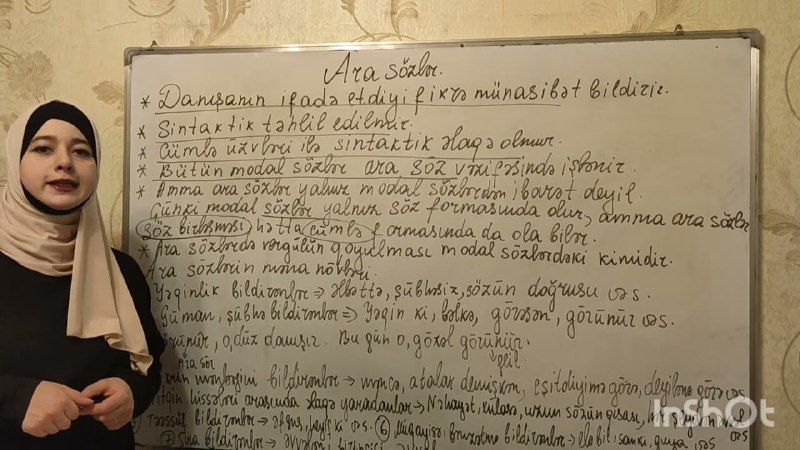 Ara sözlər.
* Danışanın ifadə etdiyi fikrə münasibət bildirir.
* Sintaktik təhlil edilmir.
* Cümlə üzvləri ilə sintaktik əlaqə olmur.
* Bütün modal sözlər ara söz vəzifəsində işlənir.
* Amma ara sözlər yalnız modal sözlərdən ibarət deyil.
Çünki modal sözlər yalnız söz formasında olur, amma ara sözlər
söz birləşməsi, hətta cümlə formasında da ola bilər.
* Ara sözlərdə vergülün qoyulması modal sözlərdəki kimidir.
Ara sözlərin məna növləri.
Yəqinlik bildirənlər ⇒ Əlbəttə, şübhəsiz, sözün doğrusu və s.
Güman, şübhə bildirənlər ⇒ Yəqin ki, bəlkə, görəsən, görünür və s.
o, düz danışır. Bu gün o, gözəl görünür.
Ara söz feil
mənbəyini bildirənlər → məncə, atalar demişkən, eşitdiyimə görə, deyilənə görə və s.
hissələri arasında əlaqə yaradanlar → Nəhayət, xülasə, uzun sözün qısası,
Təəssüf bildirənlər → əfsus, heyif ki və s. ⑥ Müqayisə, bənzətmə bildirənlər → elə bil, sanki, guya və s
⑦ Sıra bildirənlər → əvvələn,
InShOt